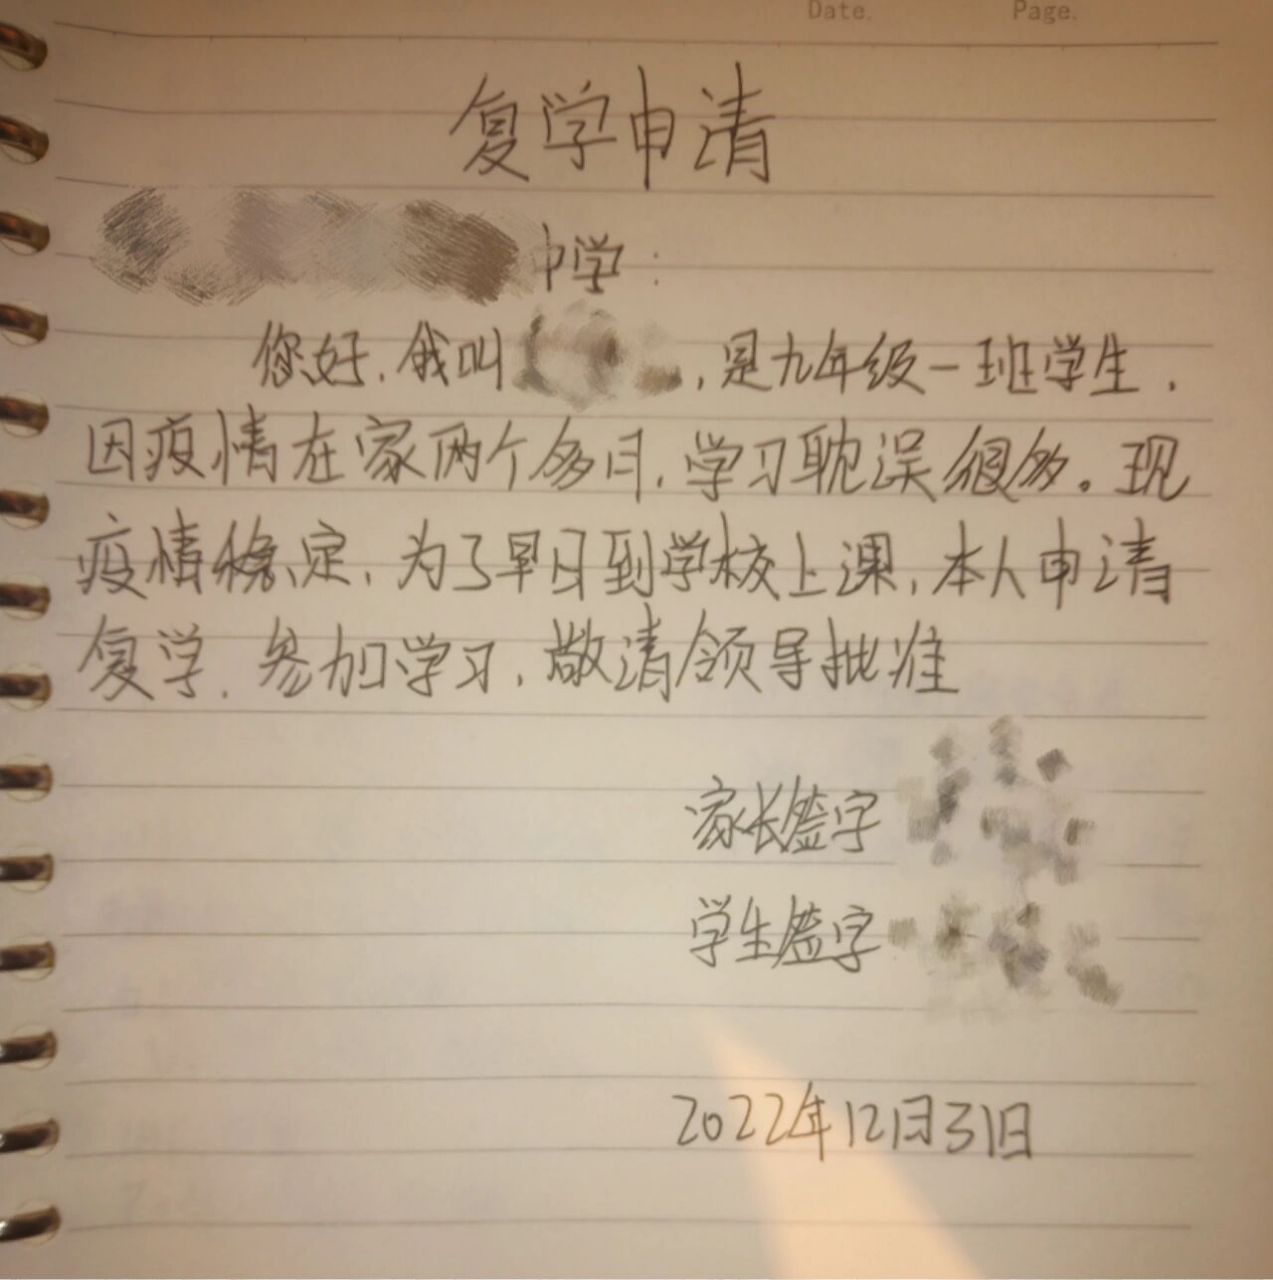 Date.
Page.
复学申请
中学:
您好,我叫 ,是九年级一班学生,
因疫情在家两个多月,学习耽误很多。现
疫情稳定,为了早日到学校上课,本人申请
复学,参加学习,敬请领导批准
家长签字
学生签字
2022年12月31日